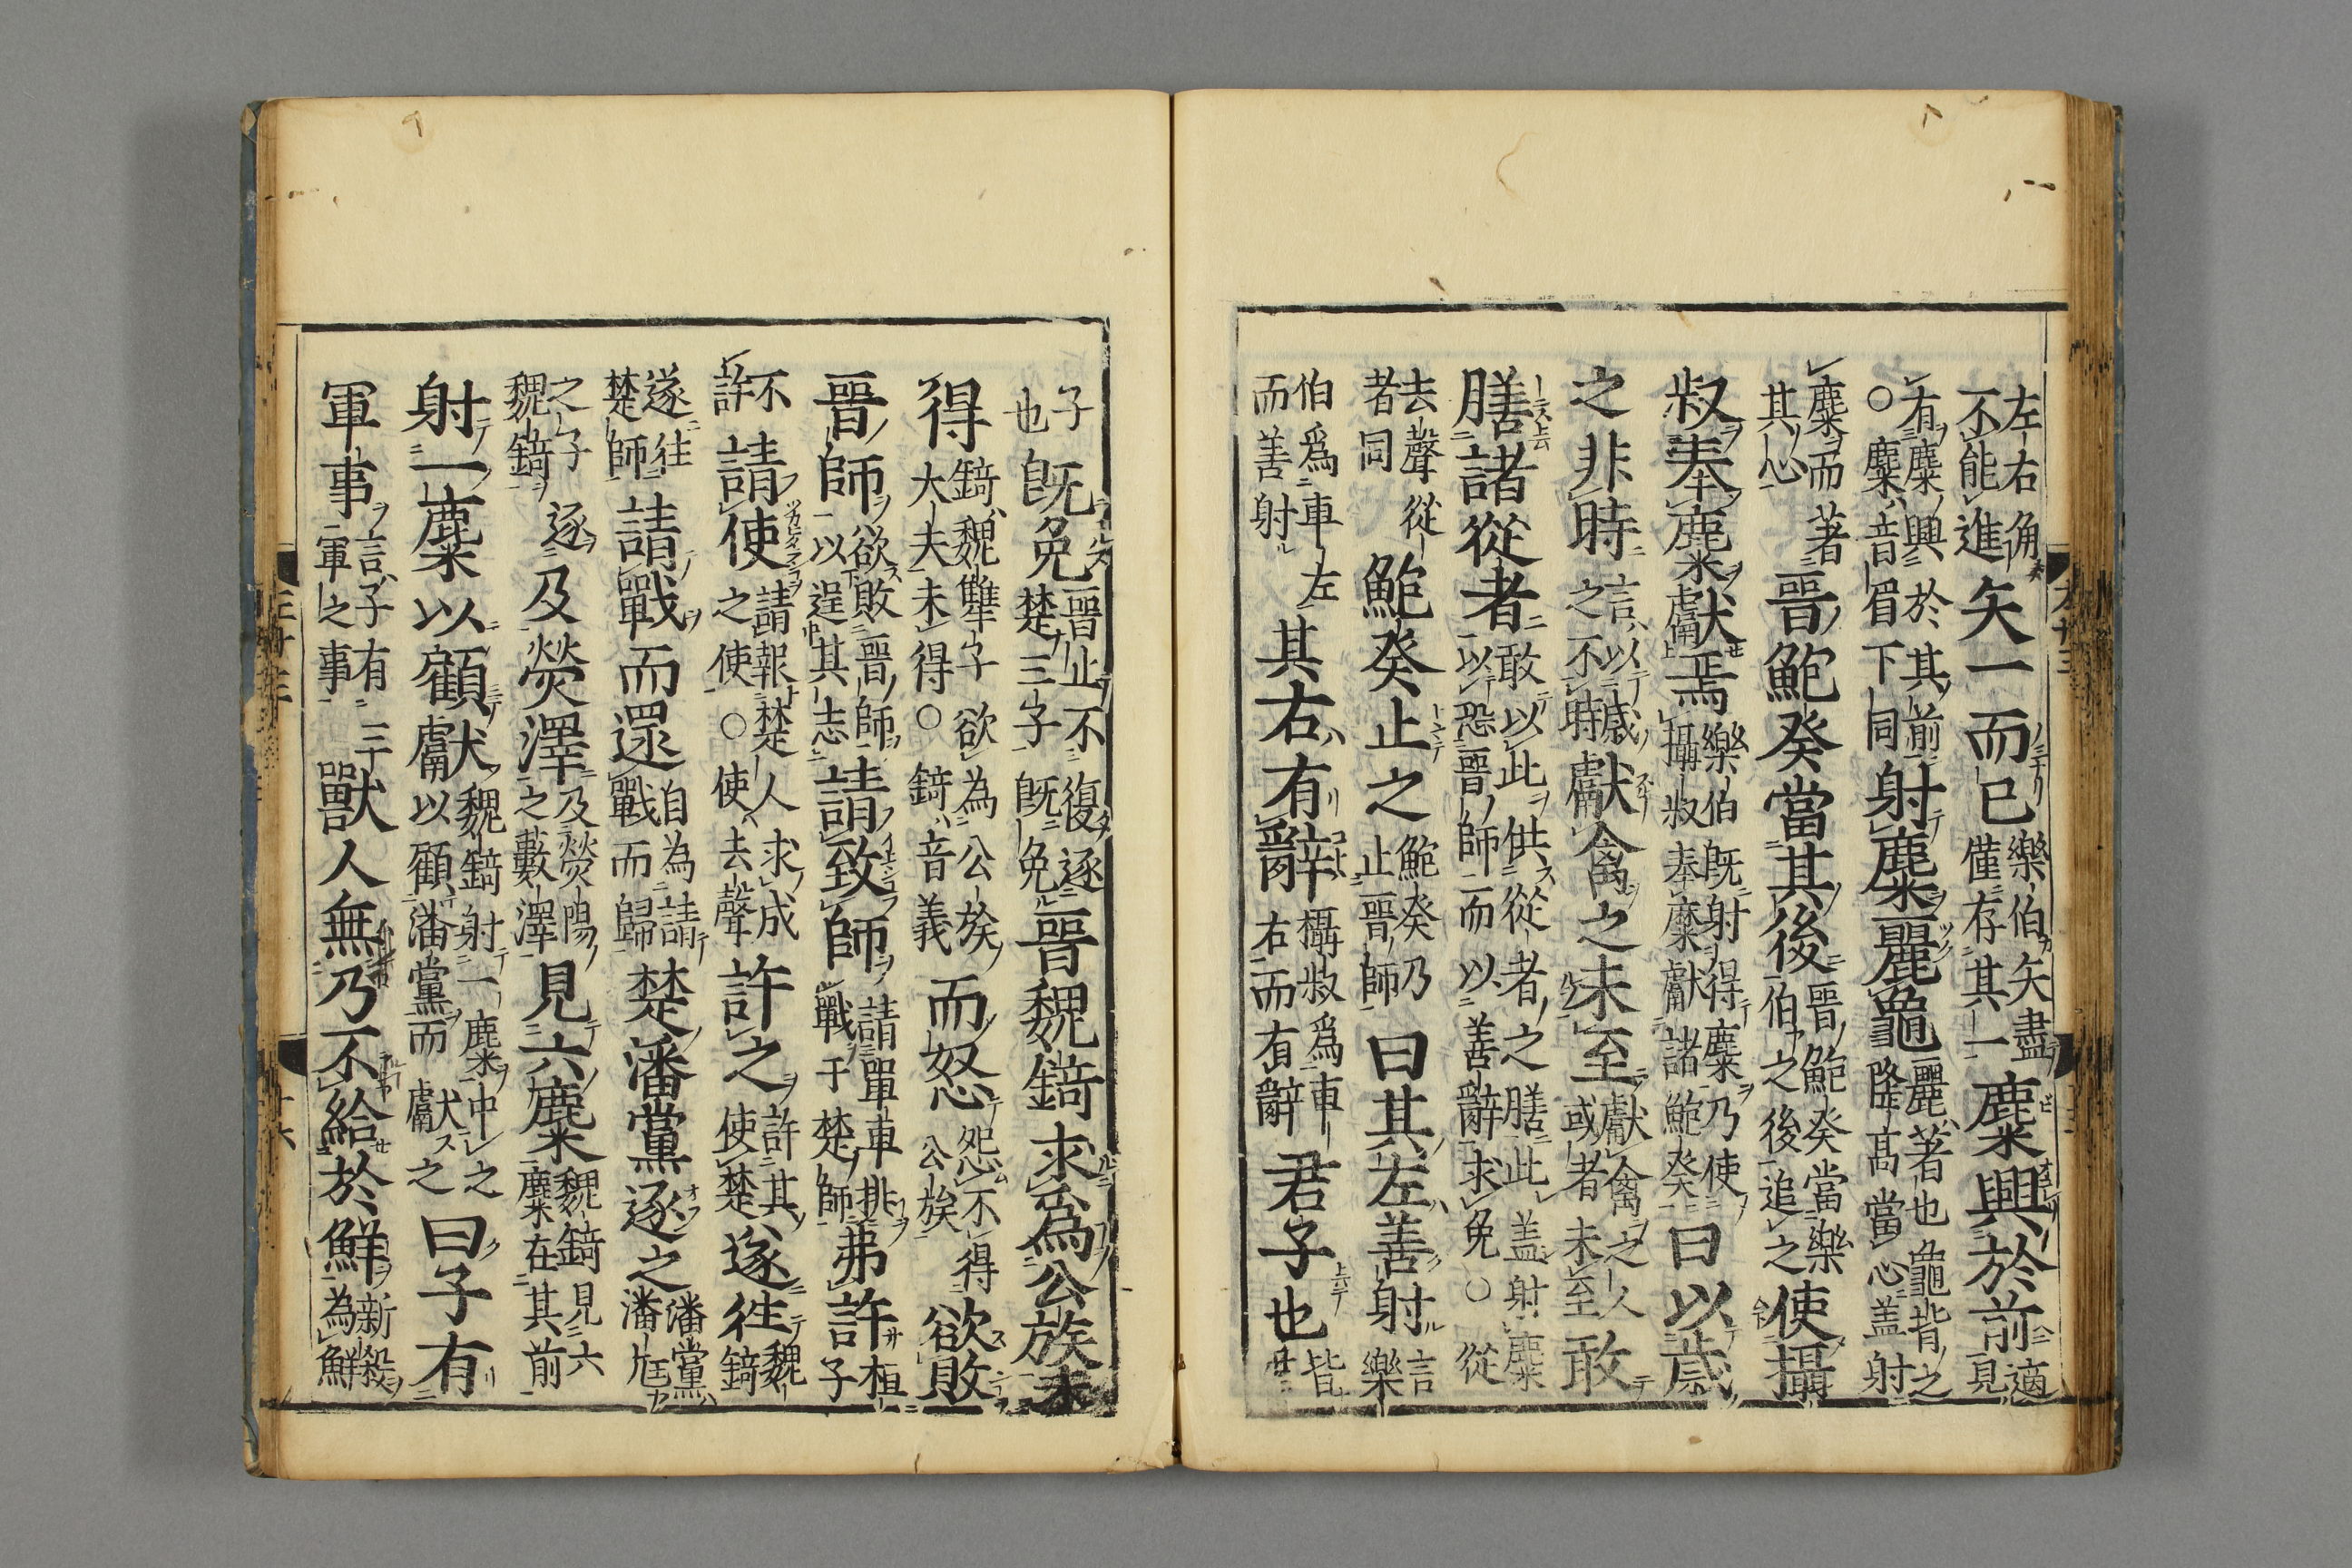 左右角不能進矢一而已樂伯矢盡僅存其一麋興於前適見
有麋興於其前○麋音眉下同射麋麗龜麗著也龜背之隆高當心盖射
麋而著其心晉鮑癸當其後晉鮑癸當樂伯之後追之使攝
叔奉麋獻焉樂伯既射得麋乃使攝叔奉麋獻諸鮑癸曰以歲
之非時言以歲之不時獻禽之未至獻禽之人或者未至敢
膳諸從者敢以此供從者之膳此盖射麋以恐晉師而以善辭求免○從
去聲從者同鮑癸止之鮑癸乃止晉師曰其左善射言樂
伯爲車左而善射其右有辭攝叔爲車右而有辭君子也皆
子也既免晉止不復逐楚三子既免晉魏錡求爲公族未
得錡魏犨子欲為公族大夫未得○錡音義而怒怨不得公族欲敗
晉師欲敗晉師以逞其志請致師請單車挑戰于楚師弗許桓子
不許請使請報楚人求成之使○使去聲許之許其使楚遂往魏錡
遂往楚師請戰而還自為請戰而歸楚潘黨逐之潘黨潘尫
之子逐魏錡及熒澤及熒陽之藪澤見六麋魏錡見六麋在其前
射一麋以顧獻魏錡射一麋中之以顧潘黨而獻之曰子有
軍事言子有軍之事獸人無乃不給於鮮新殺為鮮